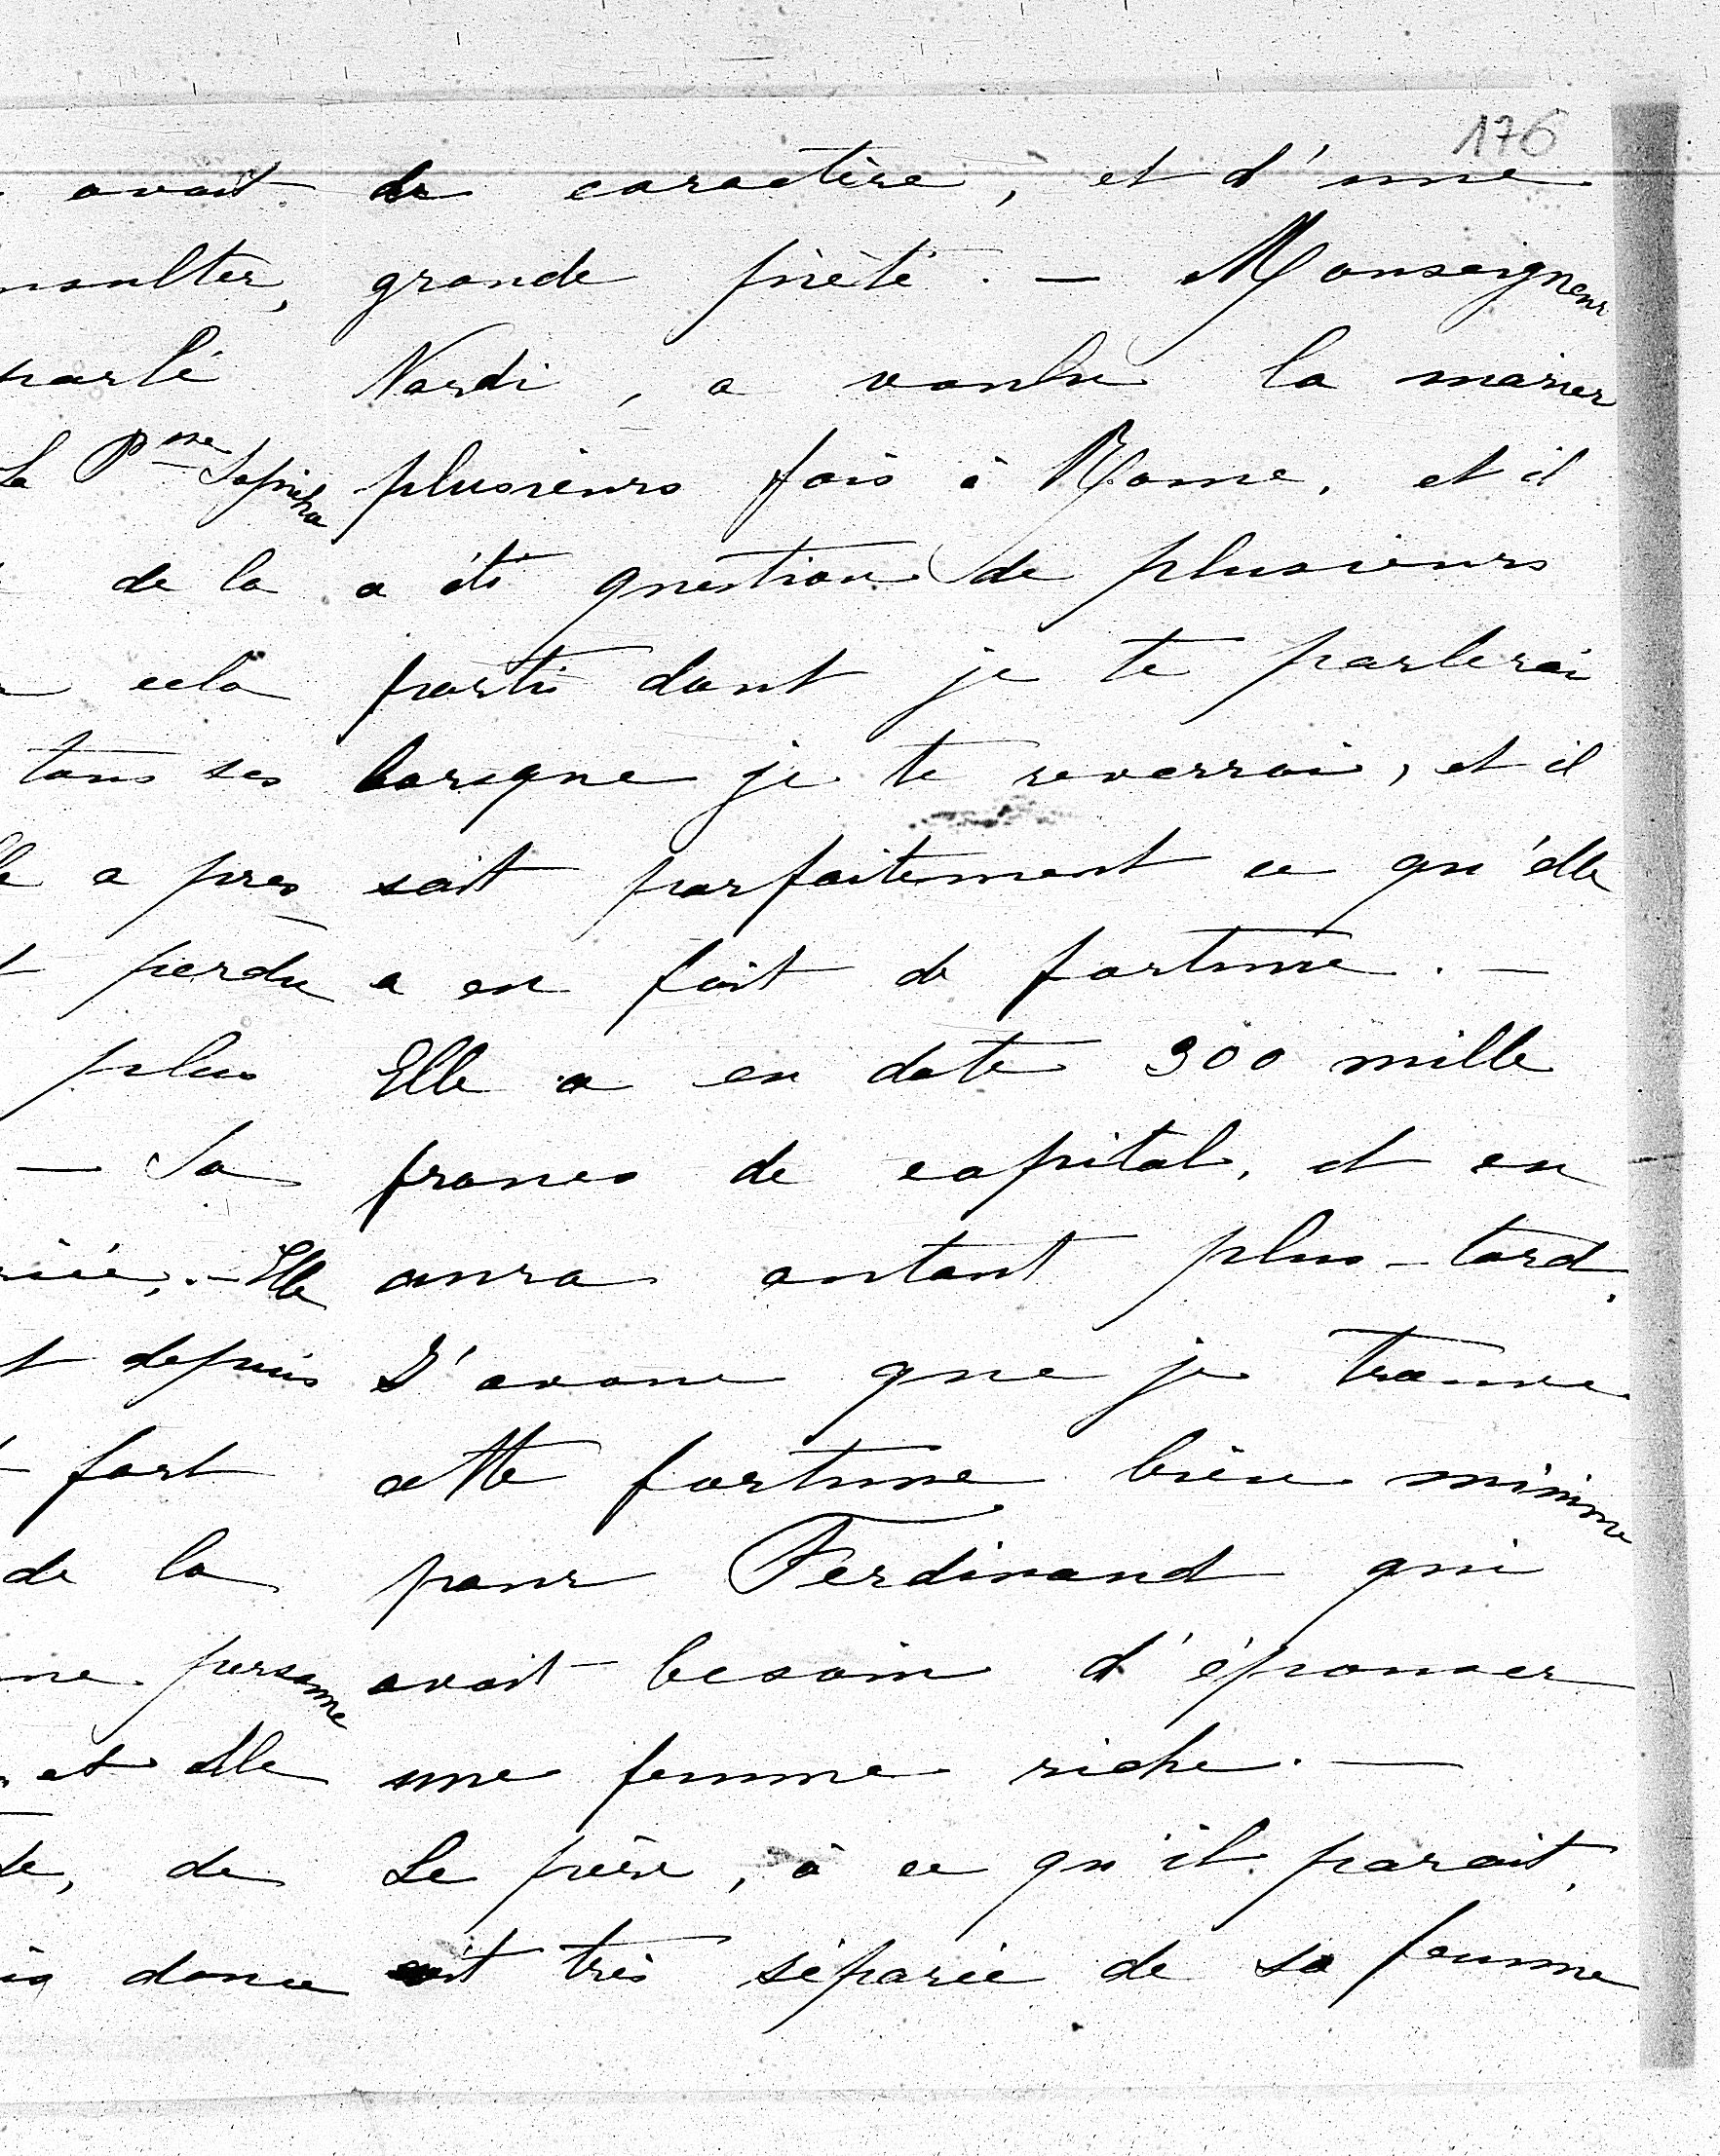 176
avait
nsulter,
parlé
La Psse Sapieha
de la
cela
tous ses
a pres
perdu
plus
— Sa
Elle
depuis
fort
de la
personne
et elle
de
donce
de caractère, et d'une
grande pièté. — Monseigneur
Nardi, a voulu la marier
plusieurs fois à Rome, et il
a été question de plusieurs
partis dont je te parlerai
lorsque je te reverrai, et il
sait parfaitement ce qu'elle
a en fait de fortune. —
Elle a en dote 300 mille
francs de capital, et en
aura autant plus-tard.
J'avoue que je trouve
cette fortune bien minime
pour Ferdinand qui
avait besoin d'épouser
une femme riche. —
Le père, à ce qu'il parait,
vit très séparée de sa femme